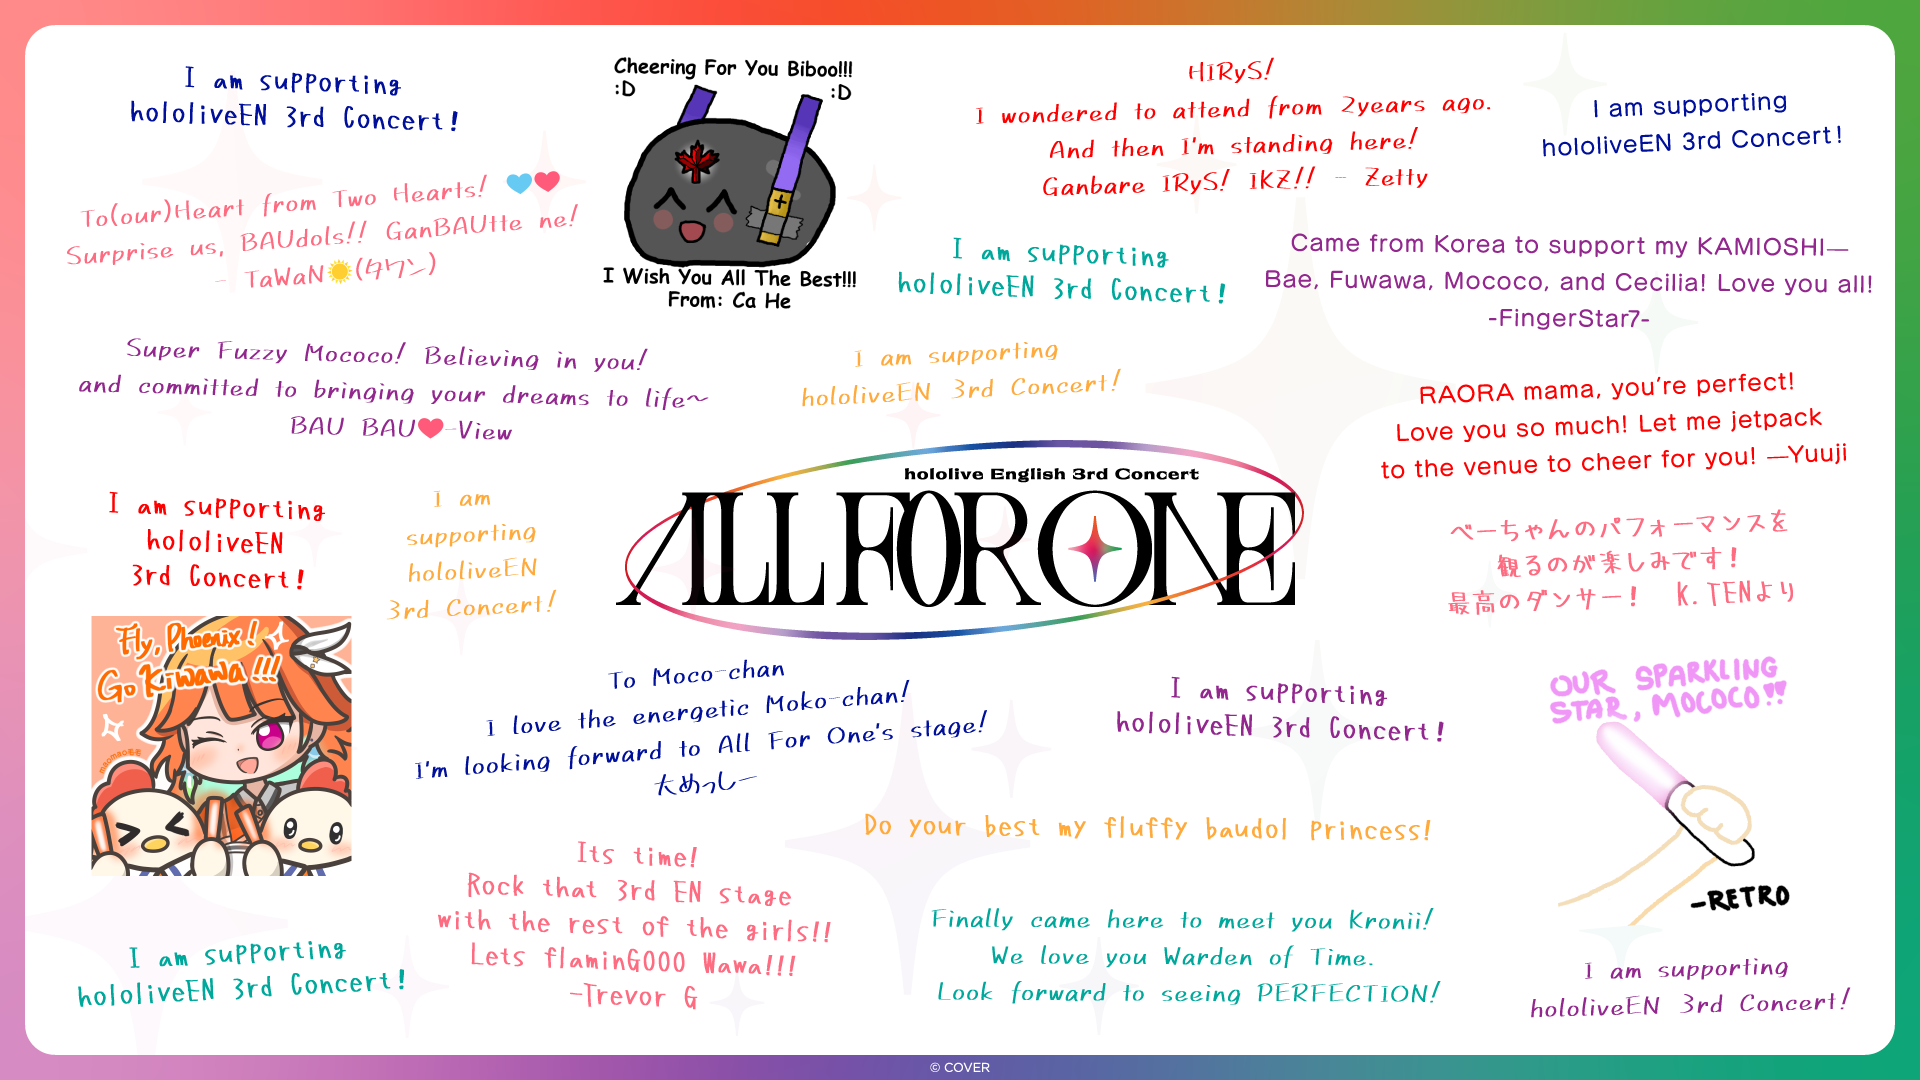 I am supporting
hololiveEN 3rd Concert!
Cheering For You Biboo!!!
:D
:D
I Wish You All The Best!!!
From: Ca He
HIRyS!
I wondered to attend from 2years ago.
And then I'm standing here!
Ganbare IRyS! IKZ!! - Zetty
I am supporting
hololiveEN 3rd Concert!
To(our)Heart from Two Hearts! 🩵❤
Surprise us, BAUdols!! GanBAUtte ne!
- TaWaN☀(タワン)
I am supporting
hololiveEN 3rd Concert!
Came from Korea to support my KAMIOSHI—
Bae, Fuwawa, Mococo, and Cecilia! Love you all!
-FingerStar7-
Super Fuzzy Mococo! Believing in you!
and committed to bringing your dreams to life~
BAU BAU❤-View
I am supporting
hololiveEN 3rd Concert!
RAORA mama, you're perfect!
Love you so much! Let me jetpack
to the venue to cheer for you! —Yuuji
I am supporting
hololiveEN
3rd Concert!
I am
supporting
hololiveEN
3rd Concert!
hololive English 3rd Concert
ALL FOR ONE
べーちゃんのパフォーマンスを
観るのが楽しみです!
最高のダンサー! K.TENより
Fly, Phoenix!
Go Kiwawa!!!
maomao毛毛
To Moco-chan
I love the energetic Moko-chan!
I'm looking forward to All For One's stage!
大めっしー
I am supporting
hololiveEN 3rd Concert!
OUR SPARKLING
STAR, MOCOCO!!
-RETRO
Do your best my fluffy baudol Princess!
Its time!
Rock that 3rd EN stage
with the rest of the girls!!
Lets flaminGOOO Wawa!!!
-Trevor G
Finally came here to meet you Kronii!
We love you Warden of Time.
Look forward to seeing PERFECTION!
I am supporting
hololiveEN 3rd Concert!
I am supporting
hololiveEN 3rd Concert!
© COVER